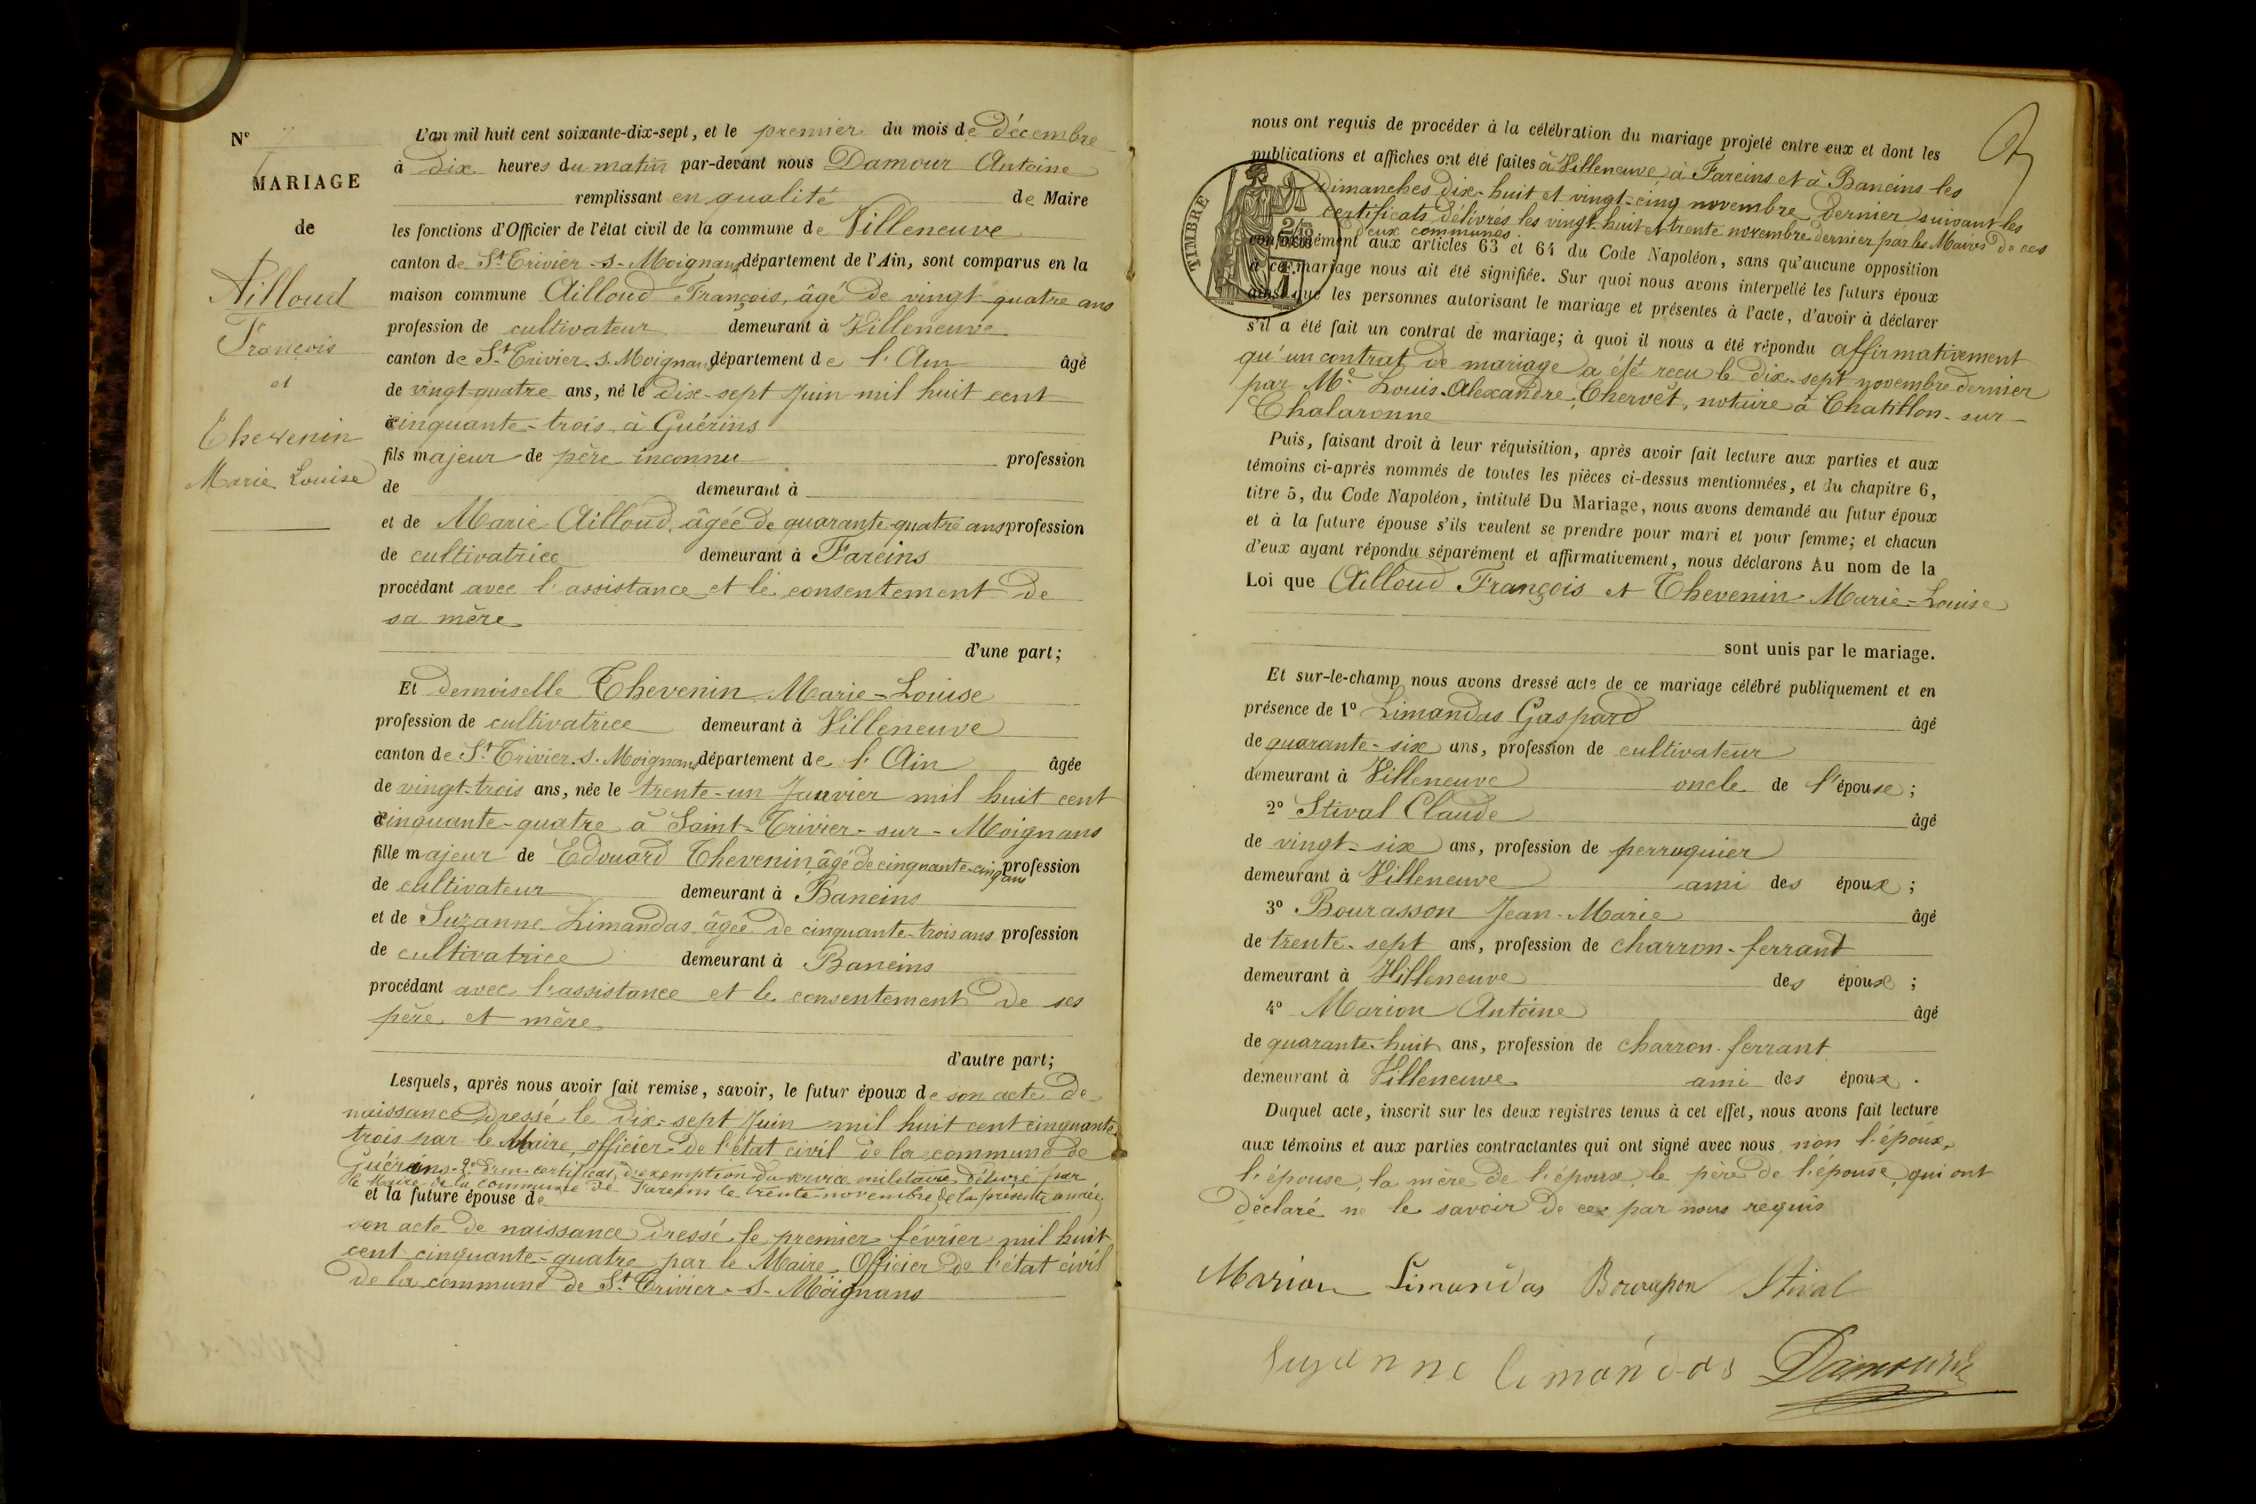 N°
MARIAGE
de
Ailloud
François
et
Thevenin
Marie Louise
L'an mil huit cent soixante-dix-sept, et le premier du mois de Décembre
à Dix heures du matin par-devant nous Damour Antoine
remplissant en qualité de Maire
les fonctions d'Officier de l'état civil de la commune de Villeneuve
canton de St Trivier-s-Moignans département de l'Ain, sont comparus en la
maison commune Ailloud François, âgé de vingt quatre ans
profession de cultivateur demeurant à Villeneuve
canton de St Trivier-s-Moignans département de l'Ain âgé
de vingt-quatre ans, né le Dix-sept Juin mil huit cent
cinquante-trois à Guérins
fils majeur de père inconnu profession
de demeurant à
et de Marie Ailloud, âgée de quarante-quatre ans profession
de cultivatrice demeurant à Fareins
procédant avec l'assistance et le consentement de
sa mère
d'une part;
Et demoiselle Thevenin Marie-Louise
profession de cultivatrice demeurant à Villeneuve
canton de St Trivier-s-Moignans département de l'Ain âgée
de vingt-trois ans, née le trente-un Janvier mil huit cent
cinquante-quatre à Saint-Trivier-sur-Moignans
fille majeur de Edouard Thevenin âgé de cinquante-cinq ans profession
de cultivateur demeurant à Baneins
et de Suzanne Limandas, âgée de cinquante-trois ans profession
de cultivatrice demeurant à Baneins
procédant avec l'assistance et le consentement de ses
père et mère
d'autre part;
Lesquels, après nous avoir fait remise, savoir, le futur époux de son acte de
naissance dressé le dix-sept Juin mil huit cent cinquante
trois par le Maire, officier de l'état civil de la commune de
Guérins - 2° d'un certificat d'exemption du service militaire délivré par
le Maire de la commune de Fareins le trente novembre de la présente année,
et la future épouse de
son acte de naissance dressé le premier février mil huit
cent cinquante-quatre par le Maire Officier de l'état civil
de la commune de St Trivier-s-Moignans
nous ont requis de procéder à la célébration du mariage projeté entre eux et dont les
publications et affiches ont été faites à Villeneuve, à Fareins et à Baneins les
Dimanches dix-huit et vingt-cinq novembre dernier suivant les
certificats délivrés les vingt-huit et trente novembre dernier par les Maires de ces
deux communes
TIMBRE
conformément aux articles 63 et 64 du Code Napoléon, sans qu'aucune opposition
à ce mariage nous ait été signifiée. Sur quoi nous avons interpellé les futurs époux
ainsi que les personnes autorisant le mariage et présentes à l'acte, d'avoir à déclarer
s'il a été fait un contrat de mariage; à quoi il nous a été répondu affirmativement
qu'un contrat de mariage a été reçu le dix-sept novembre dernier
par Me Louis-Alexandre Chervet, notaire à Chatillon-sur-
Chalaronne
Puis, faisant droit à leur réquisition, après avoir fait lecture aux parties et aux
témoins ci-après nommés de toutes les pièces ci-dessus mentionnées, et du chapitre 6,
titre 5, du Code Napoléon, intitulé Du Mariage, nous avons demandé au futur époux
et à la future épouse s'ils veulent se prendre pour mari et pour femme; et chacun
d'eux ayant répondu séparément et affirmativement, nous déclarons Au nom de la
Loi que Ailloud François et Thevenin Marie-Louise
sont unis par le mariage.
Et sur-le-champ nous avons dressé acte de ce mariage célébré publiquement et en
présence de 1° Limandas Gaspard âgé
de quarante-six ans, profession de cultivateur
demeurant à Villeneuve oncle de l'épouse;
2° Stival Claude âgé
de vingt-six ans, profession de perruquier
demeurant à Villeneuve ami des époux;
3° Bourasson Jean-Marie âgé
de trente-sept ans, profession de charron-ferrant
demeurant à Villeneuve des époux;
4° Marion Antoine âgé
de quarante-huit ans, profession de charron-ferrant
demeurant à Villeneuve ami des époux.
Duquel acte, inscrit sur les deux registres tenus à cet effet, nous avons fait lecture
aux témoins et aux parties contractantes qui ont signé avec nous non l'époux,
l'épouse, la mère de l'époux, le père de l'épouse, qui ont
déclaré ne le savoir de ce par nous requis
Marion Limandas Bourasson Stival
Suzanne limandas Damour